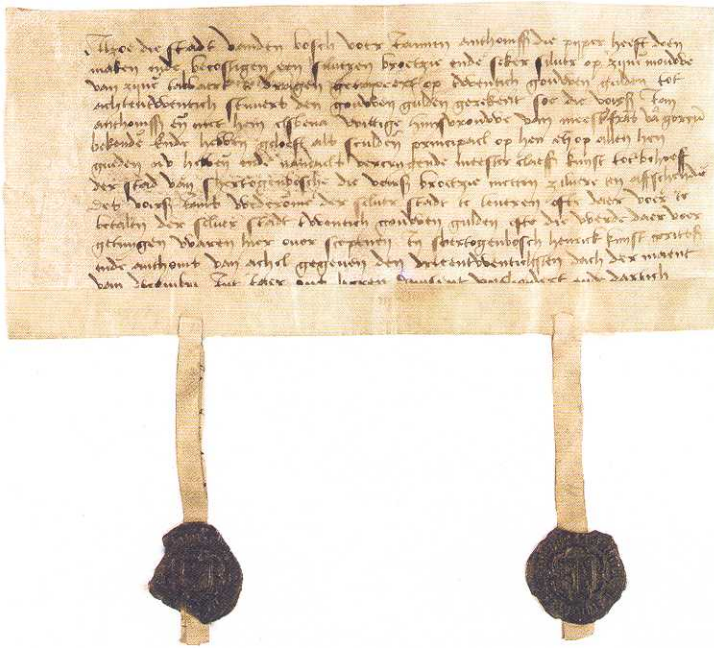 Alzoe die stadt vanden bosch voer Jannen anthoniss die pijper heeft doen
maken ende becostigen een silveren broetzie ende seker silver op zijnen mouwe
van zijne tabbaert te dragen op twentich gouwen gulden tot
achtentwentich stuvers den gouwen gulden gerekent soe die vors Jan
anthoniss en met hem wittige huysvrouwe van
bekende ende hebben geloeft als sculders principael op hen en op allen hen
gueden nv hebben ende namaels vercrigende meester claess kuyst tot behoeff
der stad van tshertogenbossche die vors broetzie metten zilvere en affscheyden
des vors Jans wederome der selver stadt te leveren ofte daer voer te
betalen der selver stadt twentich gouwen gulden ofte die werde daer voer
getuygen waren hier over scepenen in tshertogenbosch henrick kuyst
ende anthonis van achel gegeven den drieentwentichsten dach der maent
van decembri Int Jaer ons heren duysent vyfhondert ende dartich